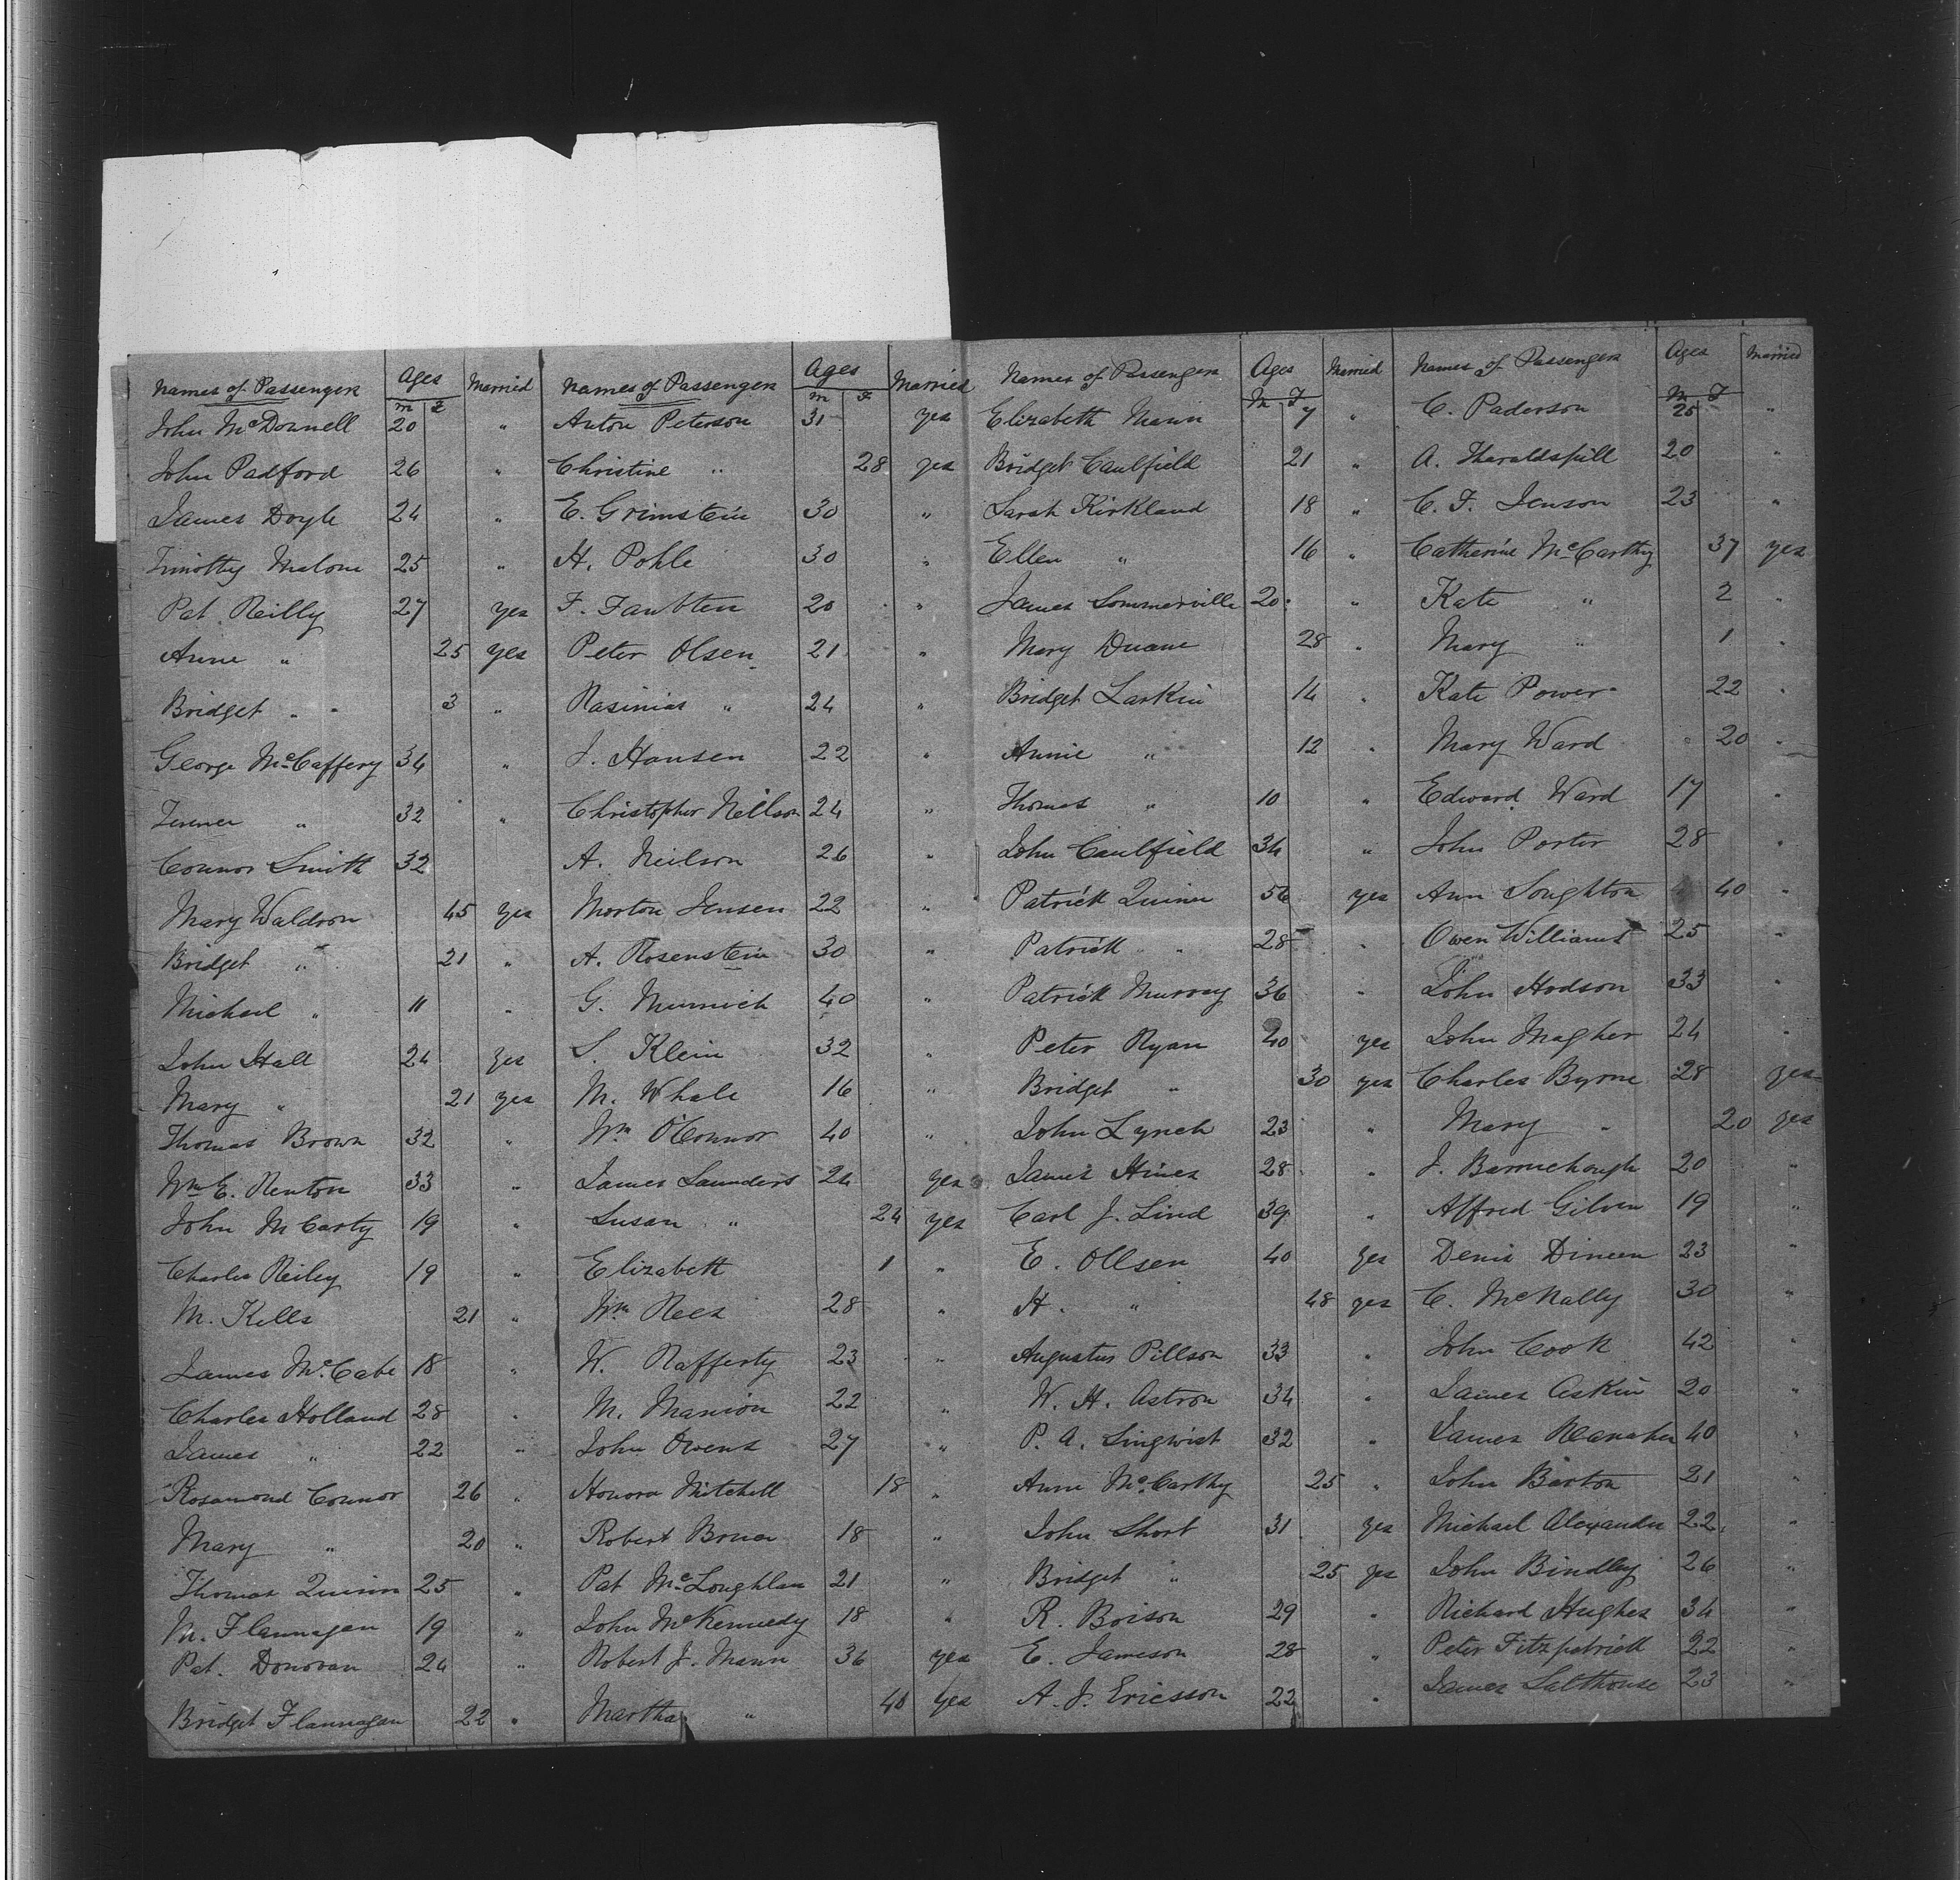 Names of Passengers Ages Married
M F
John McDonnell 20 "
John Padford 26 "
James Doyle 24 "
Timothy Malone 25 "
Pat. Reilly 27 yes
Anne " 25 yes
Bridget " 3 "
George McCaffery 34 "
Terence " 32 "
Connor Smith 32
Mary Waldron 45 yes
Bridget " 21 "
Michael " 11 "
John Hall 24 yes
Mary " 21 yes
Thomas Brown 32 "
Wm E. Renton 33 "
John McCarty 19 "
Charles Reiley 19 "
M. Kells 21 "
James McCabe 18 "
Charles Holland 28 "
James " 22 "
Rosamond Connor 26 "
Mary " 20 "
Thomas Quinn 25 "
M. Flannagan 19 "
Pat. Donovan 24 "
Bridget Flannagan 22 "
Names of Passengers Ages Married
M F
Anton Peterson 31 yes
Christine " 28 yes
E. Grimstein 30 "
H. Pohle 30 "
F. 20 "
Peter Olsen 21 "
Rasinias " 24 "
J. Hansen 22 "
Christopher Nillson 24 "
A. Neilson 26 "
Morton Jensen 22 "
A. Rosenstein 30 "
G. Munnich 40 "
S. Klein 32 "
M. Whale 16 "
Wm O'Connor 40 "
James Saunders 24 yes
Susan " 24 yes
Elizabeth 1 "
Wm Rees 28 "
W. Rafferty 23 "
M. Manion 22 "
John Owens 27 "
Honora Mitchell 18 "
Robert Bruce 18 "
Pat McLoughlan 21 "
John McKennedy 18 "
Robert J. Mann 36 yes
Martha " 40 yes
Names of Passengers Ages Married
M F
Elizabeth Mann 7 "
Bridget Caulfield 21 "
Sarah Kirkland 18 "
Ellen " 16 "
James Sommerville 20 "
Mary Duane 28 "
Bridget Larkin 14 "
Annie " 12 "
Thomas " 10 "
John Caulfield 34 "
Patrick Quinn 56 yes
Patrick " 28 "
Patrick Murray 36 "
Peter Ryan 40 yes
Bridget " 30 yes
John Lynch 23 "
James Hines 28 "
Carl J. Lind 39 "
E. Ollsen 40 yes
H. " 48 yes
Augustus Pillson 33 "
W. H. Astron 34 "
P. A. Lingwist 32 "
Anne McCarthy 25 "
John Short 31 yes
Bridget " 25 yes
R. Boison 29 "
E. Jameson 28 "
A. J. Ericsson 22 "
Names of Passengers Ages Married
M F
C. Paderson 25 "
A. 20 "
C. F. Jenson 23 "
Catherine McCarthy 37 yes
Kate " 2 "
Mary " 1 "
Kate Power 22 "
Mary Ward 20 "
Edward Ward 17 "
John Porter 28 "
Ann Soughton 40 "
Owen Williams 25 "
John Hodson 33 "
John Magher 24 "
Charles Byrne 28 yes
Mary " 20 yes
J. 20 "
Alfred Gilven 19 "
Denis Dineen 23 "
C. McNally 30 "
John Cook 42 "
James Askin 20 "
James 40 "
John Barton 21 "
Michael Alexander 22 "
John Bindley 26 "
Richard Hughes 34 "
Peter Fitzpatrick 22 "
James Salthouse 23 "